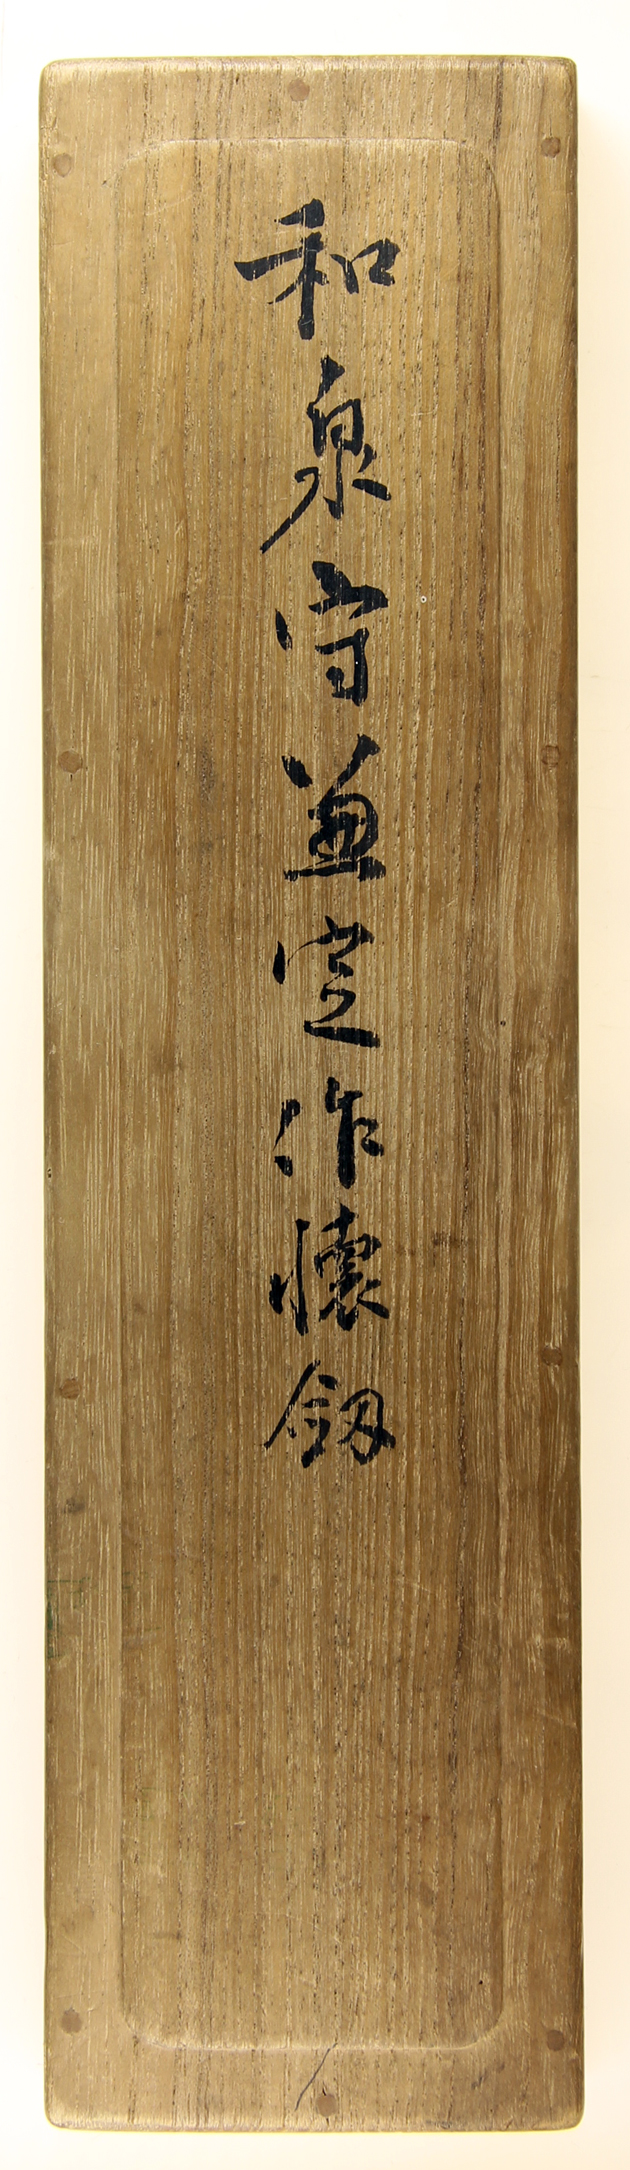 和泉守兼定作懐釼